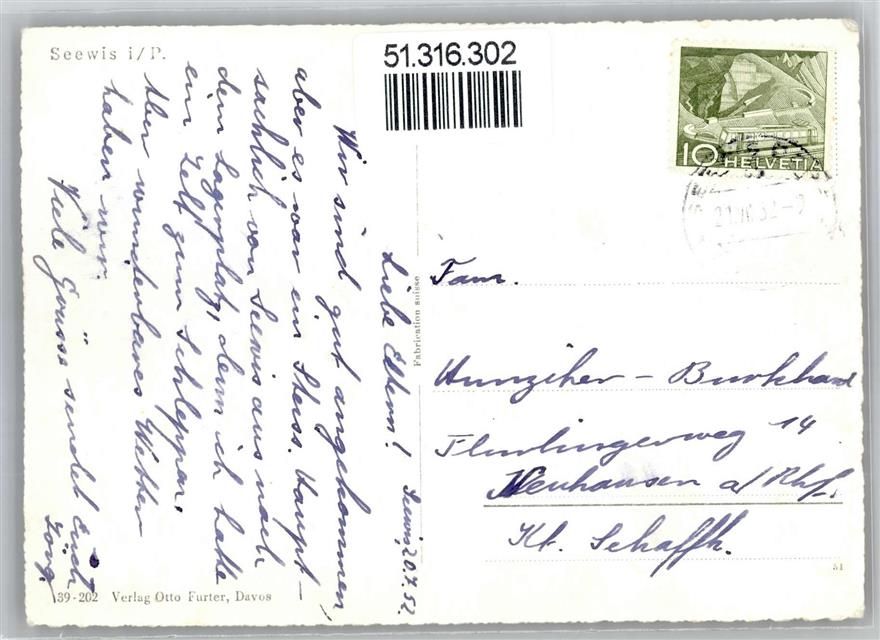 Seewis i/P.
51.316.302
10 HELVETIA
Seewis, 20.7.52.
Liebe Eltern!
Wir sind gut angekommen,
aber es war ein Steiss. Haupt-
sächlich von Seewis aus nach
dem Lagerplatz, denn ich hatte
ein Zelt zum Schleppen.
Aber wunderbares Wetter
haben wir.
Viele Grüsse sendet Euch
Jörg
Fabrication suisse
Fam.
Hunziker - Burkhard
Flurlingerweg 14
Neuhausen a/Rhf.
Kt. Schaffh.
51
39-202 Verlag Otto Furter, Davos